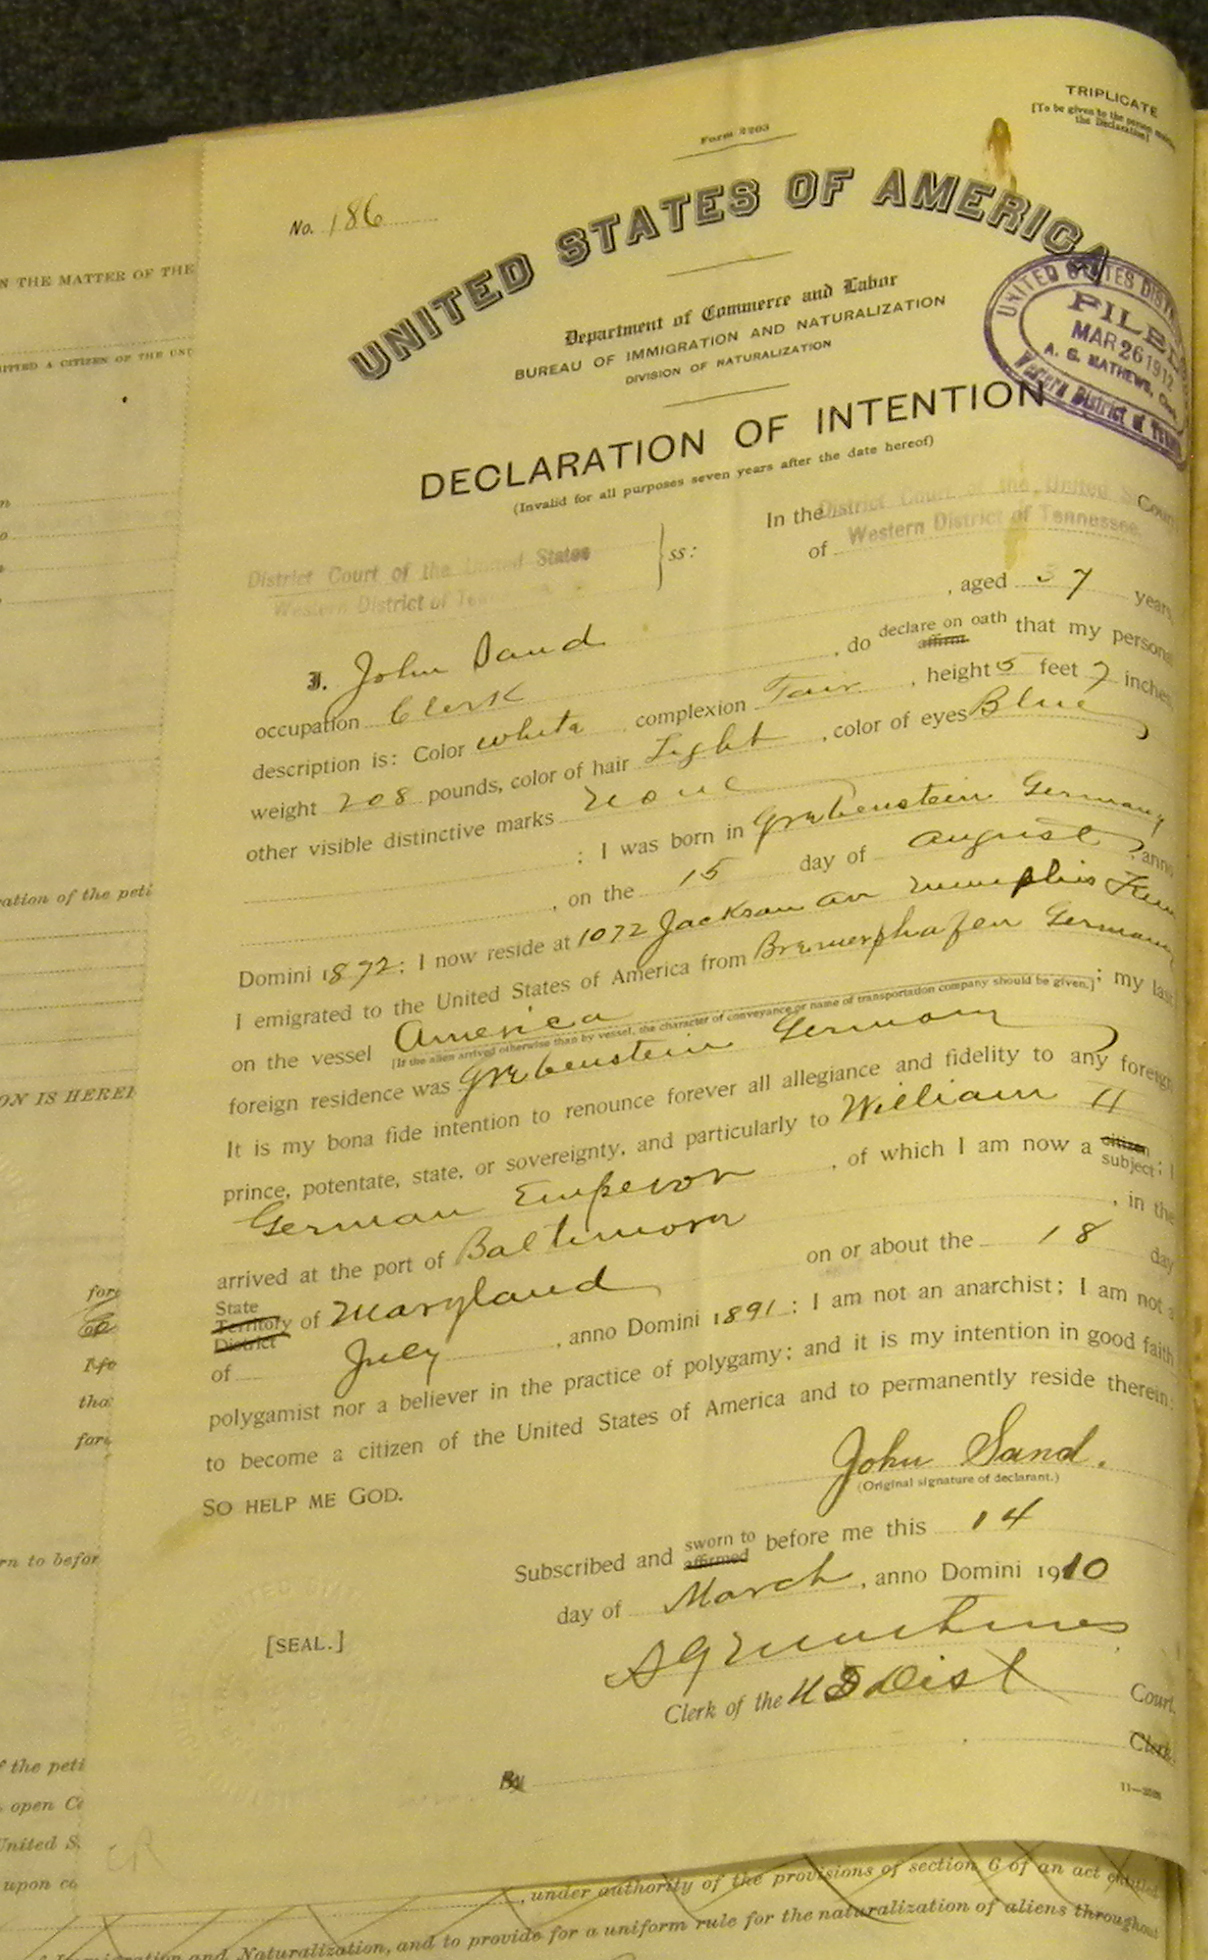 TRIPLICATE
[To be given to the person making
the Declaration]
Form 2203
No. 186
UNITED STATES OF AMERICA
Department of Commerce and Labor
BUREAU OF IMMIGRATION AND NATURALIZATION
DIVISION OF NATURALIZATION
UNITED STATES DISTRICT
FILED
MAR 26 1912
A. G. MATHEWS, Clerk
Western District of TENN
DECLARATION OF INTENTION
(Invalid for all purposes seven years after the date hereof)
District Court of the United States
Western District of
ss:
In the District Court of the United S Court
of Western District of Tennessee.
I. John Sand, aged 37 years
occupation Clerk, do declare on oath affirm that my personal
description is: Color white complexion Fair, height 5 feet 7 inches,
weight 208 pounds, color of hair Light, color of eyes Blue
other visible distinctive marks none
; I was born in Grebenstein Germany
, on the 15 day of August, anno
Domini 1872; I now reside at 1072 Jackson av Memphis Tenn
I emigrated to the United States of America from Bremerhafen Germany
on the vessel America; my last
[If the alien arrived otherwise than by vessel, the character of conveyance or name of transportation company should be given.]
foreign residence was Grebenstein Germany
It is my bona fide intention to renounce forever all allegiance and fidelity to any foreign
prince, potentate, state, or sovereignty, and particularly to William II
German Emperor, of which I am now a citizen subject; I
arrived at the port of Baltimore, in the
State Territory District of Maryland on or about the 18 day
of July, anno Domini 1891; I am not an anarchist; I am not a
polygamist nor a believer in the practice of polygamy; and it is my intention in good faith
to become a citizen of the United States of America and to permanently reside therein:
SO HELP ME GOD.
John Sand.
(Original signature of declarant.)
Subscribed and sworn to affirmed before me this 14
day of March, anno Domini 1910
[SEAL.]
Clerk of the U S Dist Court.
By Clerk.
N THE MATTER OF THE
ITTED A CITIZEN OF THE UNI
ation of the peti
ON IS HEREI
fore
tha
fore
rn to befor
f the peti
open Co
United S.
upon co
, under authority of the provisions of section 6 of an act entitled
Immigration and Naturalization, and to provide for a uniform rule for the naturalization of aliens throughout